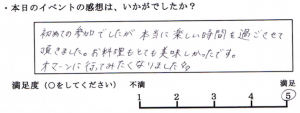 ・本日のイベントの感想は、いかがでしたか？
初めての参加でしたが 本当に楽しい時間を過ごさせて
頂きました。お料理もとても美味しかったです。
オマーンに行ってみたくなりました
満足度（○をしてください） 不満 満足
1 2 3 4 5